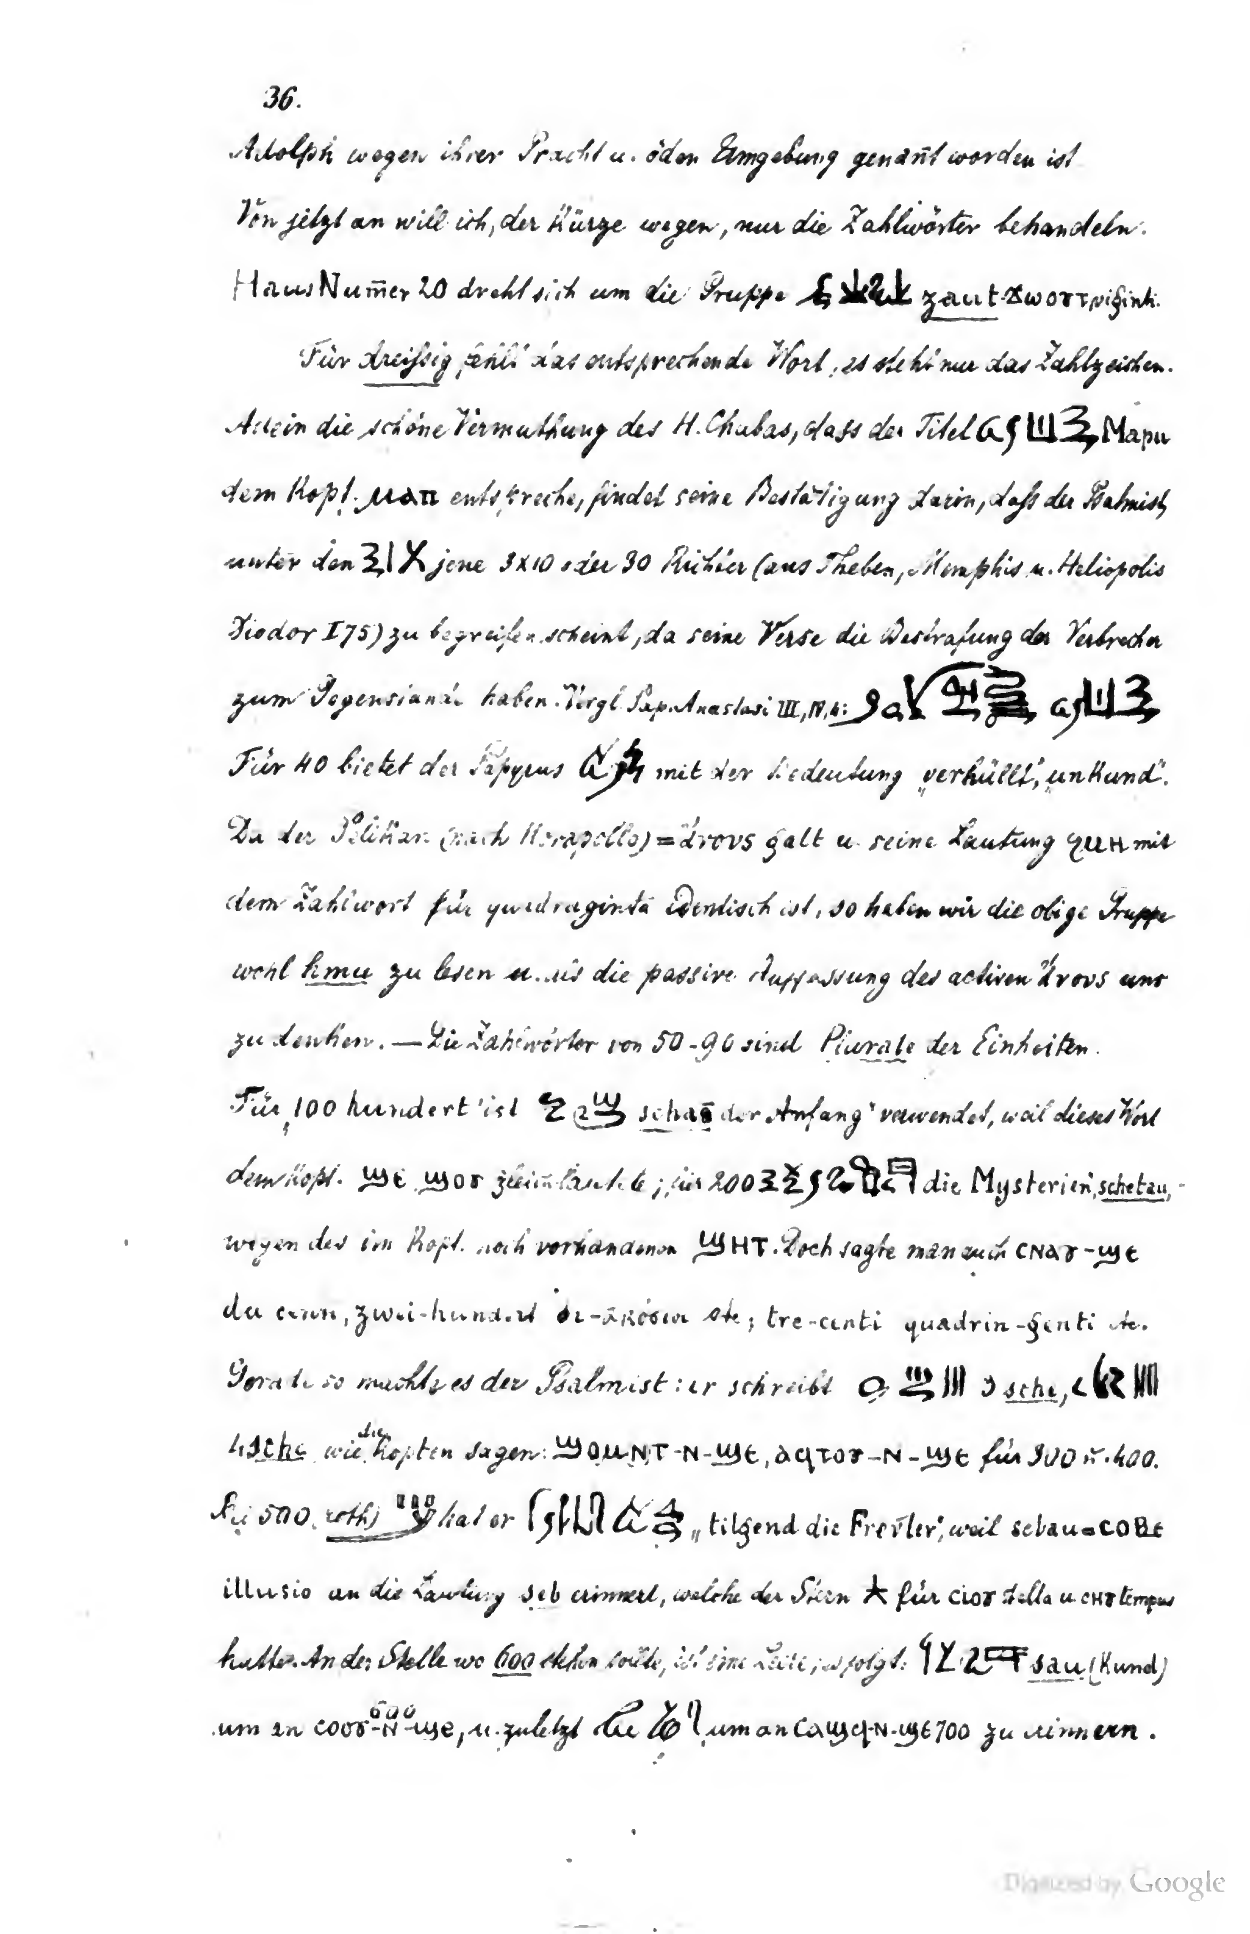 36.
Adolph wegen ihrer Pracht u. öden Umgebung genan̄t worden ist
Von jetzt an will ich, der Kürze wegen, nur die Zahlwörter behandeln.
Haus Num̄er 20 dreht sich um die Gruppe zaut ϫⲱⲟⲩⲧ, viginti.
Für dreissig fehlt das entsprechende Wort, es steht nur das Zahlzeichen.
Allein die schöne Vermuthung des H. Chabas, dass der Titel Mapu
dem Kopt. ⲙⲁⲡ entspreche, findet seine Bestätigung darin, dass der Psalmist,
unter den jene 3x10 oder 30 Richter (aus Theben, Memphis u. Heliopolis
Diodor I 75) zu begreifen scheint, da seine Verse die Bestrafung der Verbrecher
zum Gegenstande haben. Vergl. Pap. Anastasi III, IV, 4:
Für 40 bietet der Papyrus mit der Bedeutung „verhüllt", „unkund".
Da der Pelikan (nach Horapollo) = ἄνους galt u. seine Lautung ϩⲙⲏ mit
dem Zahlwort für quadraginta identisch ist, so haben wir die obige Gruppe
wohl hmu zu lesen u. uns die passive Auffassung des activen ἄνους uns
zu denken. — Die Zahlwörter von 50-90 sind Plurale der Einheiten.
Für „100 hundert" ist schaā „der Anfang" verwendet, weil dieses Wort
dem Kopt. ϣⲉ ϣⲟⲩ gleich lautete; für 200 die Mysterien, schetau,
wegen des im Kopt. noch vorhandenen ϣⲏⲧ. Doch sagte man auch ⲥⲛⲁⲩ-ϣⲉ
du centi, zwei-hundert δι-ακόσιοι etc; tre-centi quadrin-genti etc.
Gerade so machte es der Psalmist: er schreibt 3 sche,
4 sche wie die Kopten sagen: ϣⲟⲙⲛⲧ-ⲛ-ϣⲉ, ⲁϥⲧⲟⲩ-ⲛ-ϣⲉ für 300 u. 400.
Bei 500 (roth) hat er „tilgend die Frevler", weil sebau=ⲥⲟⲃⲉ
illusio an die Lautung seb erinnert, welche der Stern ★ für ⲥⲓⲟⲩ stella u. ⲥⲏⲩ tempus
hatte. An der Stelle wo 600 stehen sollte, ist eine Lücke; es folgt: sau (Kund)
um an ⲥⲟⲟⲩ-ⲛ-ϣⲉ, u. zuletzt um an ⲥⲁϣϥ-ⲛ-ϣⲉ 700 zu erinnern.
Digitized by Google